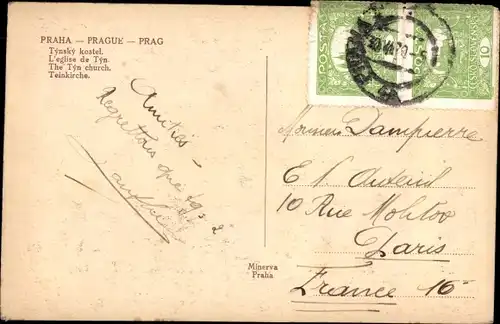 PRAHA — PRAGUE — PRAG
Týnský kostel.
L'eglise de Týn.
The Týn church.
Teinkirche.
Amitiés —
Regrettons que
Minerva
Praha
POSTA
ČESKO-SLOVENSKÁ
10
Monsieur Dampierre
E N Auteuil
10 Rue Molitor
Paris
France 16e